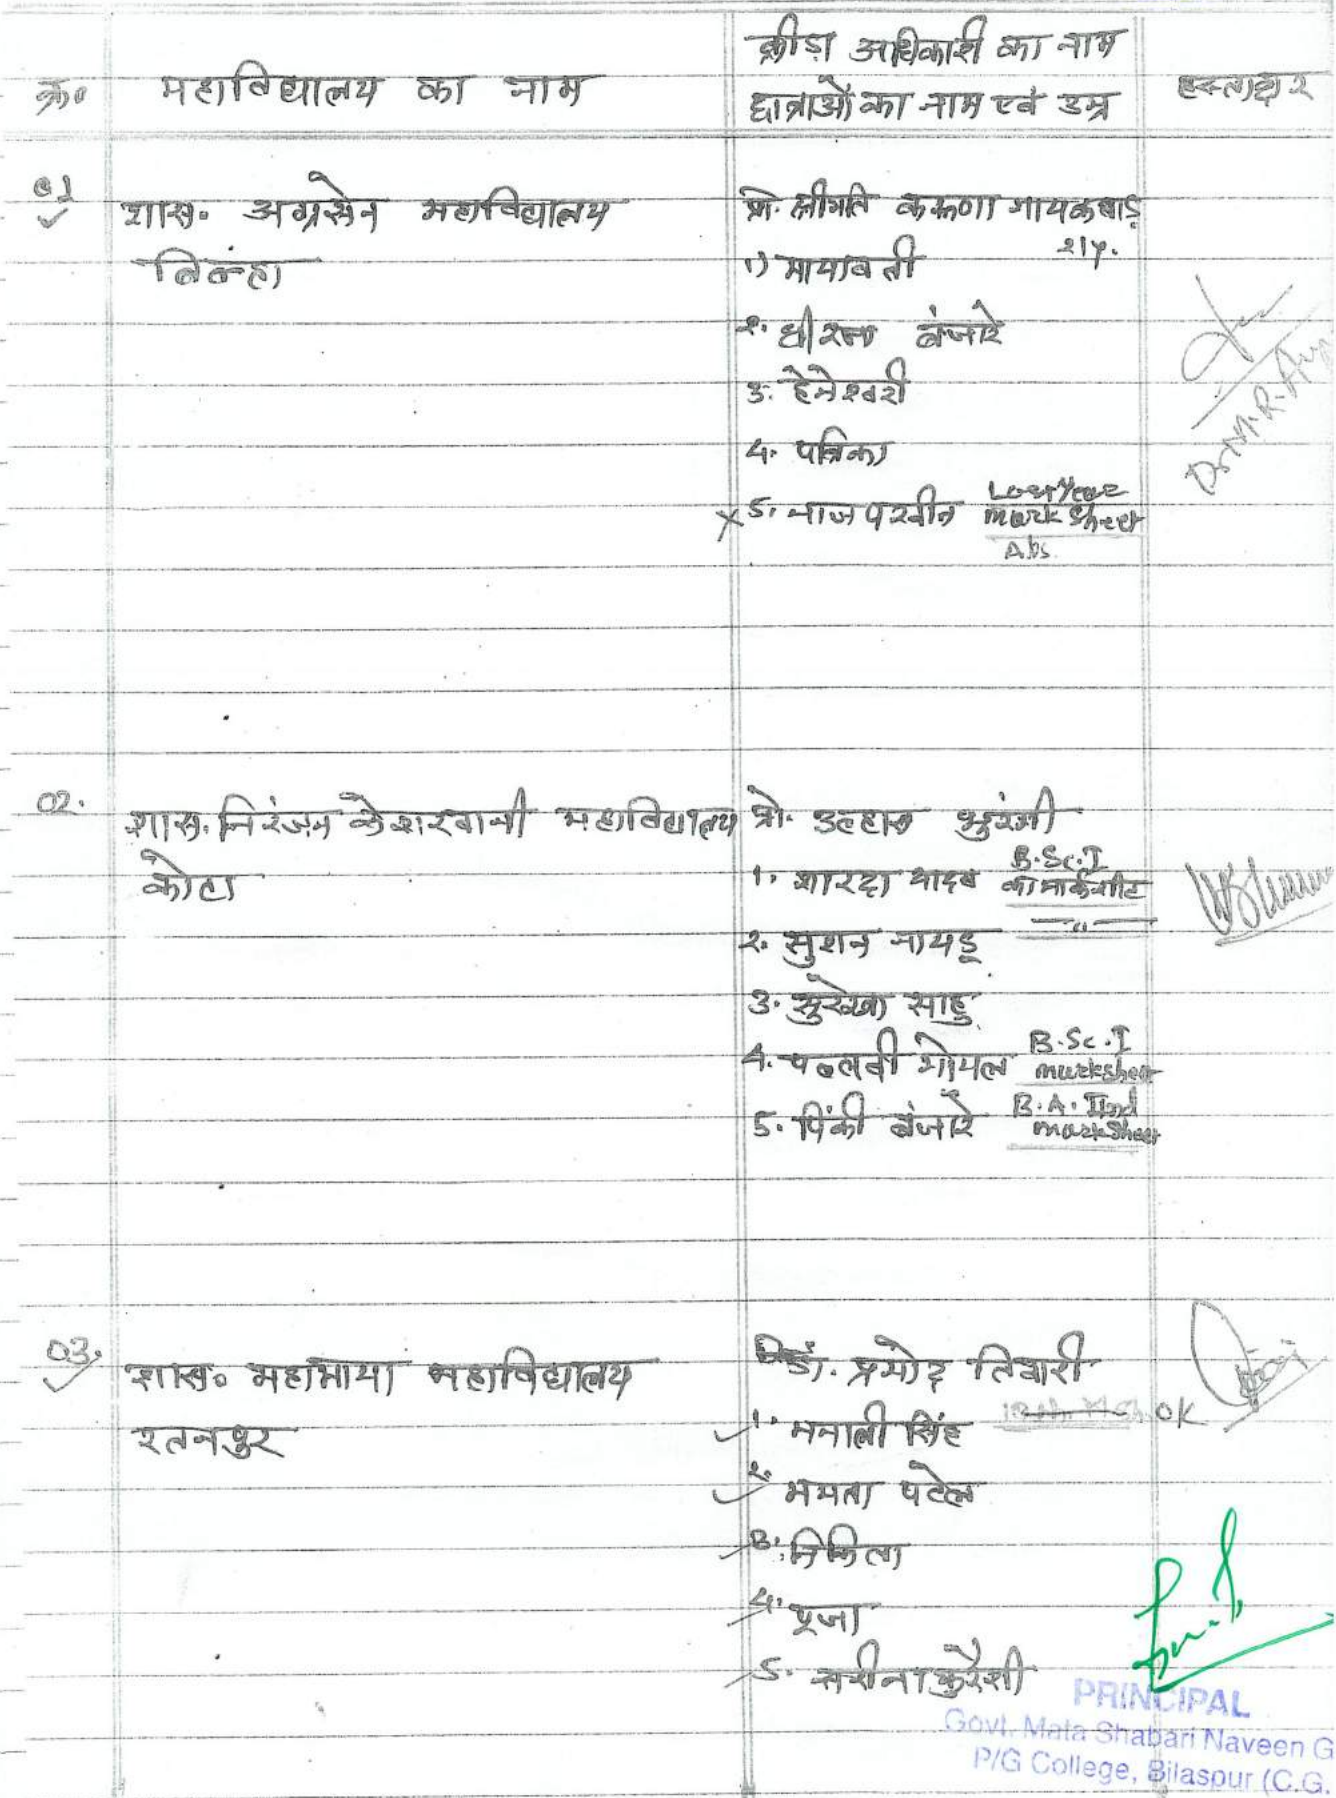 क्रीड़ा अधिकारी का नाम
क्र० महाविद्यालय का नाम छात्राओं का नाम एवं उम्र हस्ताक्षर
01 शास० अग्रसेन महाविद्यालय प्रो. श्रीमति करूणा गायकवाड़
बिल्हा 1) मायावती
2. धीरता बंजारे
3. हेमेश्वरी
4. पत्रिका
5. नाज परवीन Last Year
mark sheet
Abs.
02. शास. निरंजन केशरवानी महाविद्यालय प्रो. उल्हास
कोटा 1. शारदा यादव B.Sc.I
का मार्कशीट
2. सुशन नायडू — " —
3. सुरेखा साहु
4. पल्लवी गोयल B.Sc.I
marksheet
5. पिंकी बंजारे B.A. IInd
marksheet
03. शास० महामाया महाविद्यालय डॉ. प्रमोद तिवारी
रतनपुर 1. मनाली सिंह OK
2. ममता पटेल
3. निकिता
4. पूजा
5. कुरैशी
PRINCIPAL
Govt. Mata Shabari Naveen G
P/G College, Bilaspur (C.G.